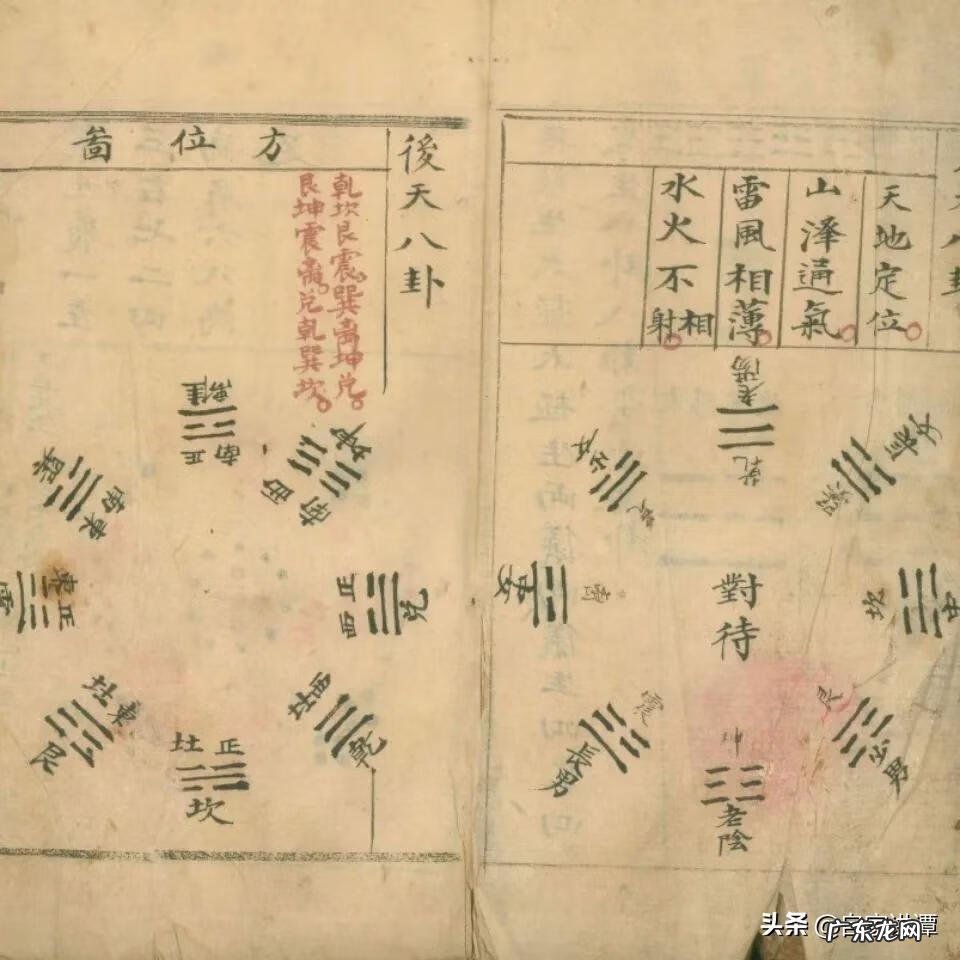 八卦
天地定位
山澤通氣
雷風相薄
水火不相射
老陽
乾
兌
坎
離
震
長男
艮
少男
坤
老陰
對待
後天八卦
方位啚
乾坎艮震巽离坤兌
艮坤震离兌乾巽坎
離
正南
坤
西南
巽
東南
正東
正西
兌
東北
艮
正北
坎
西北
乾
头条
广东龙网